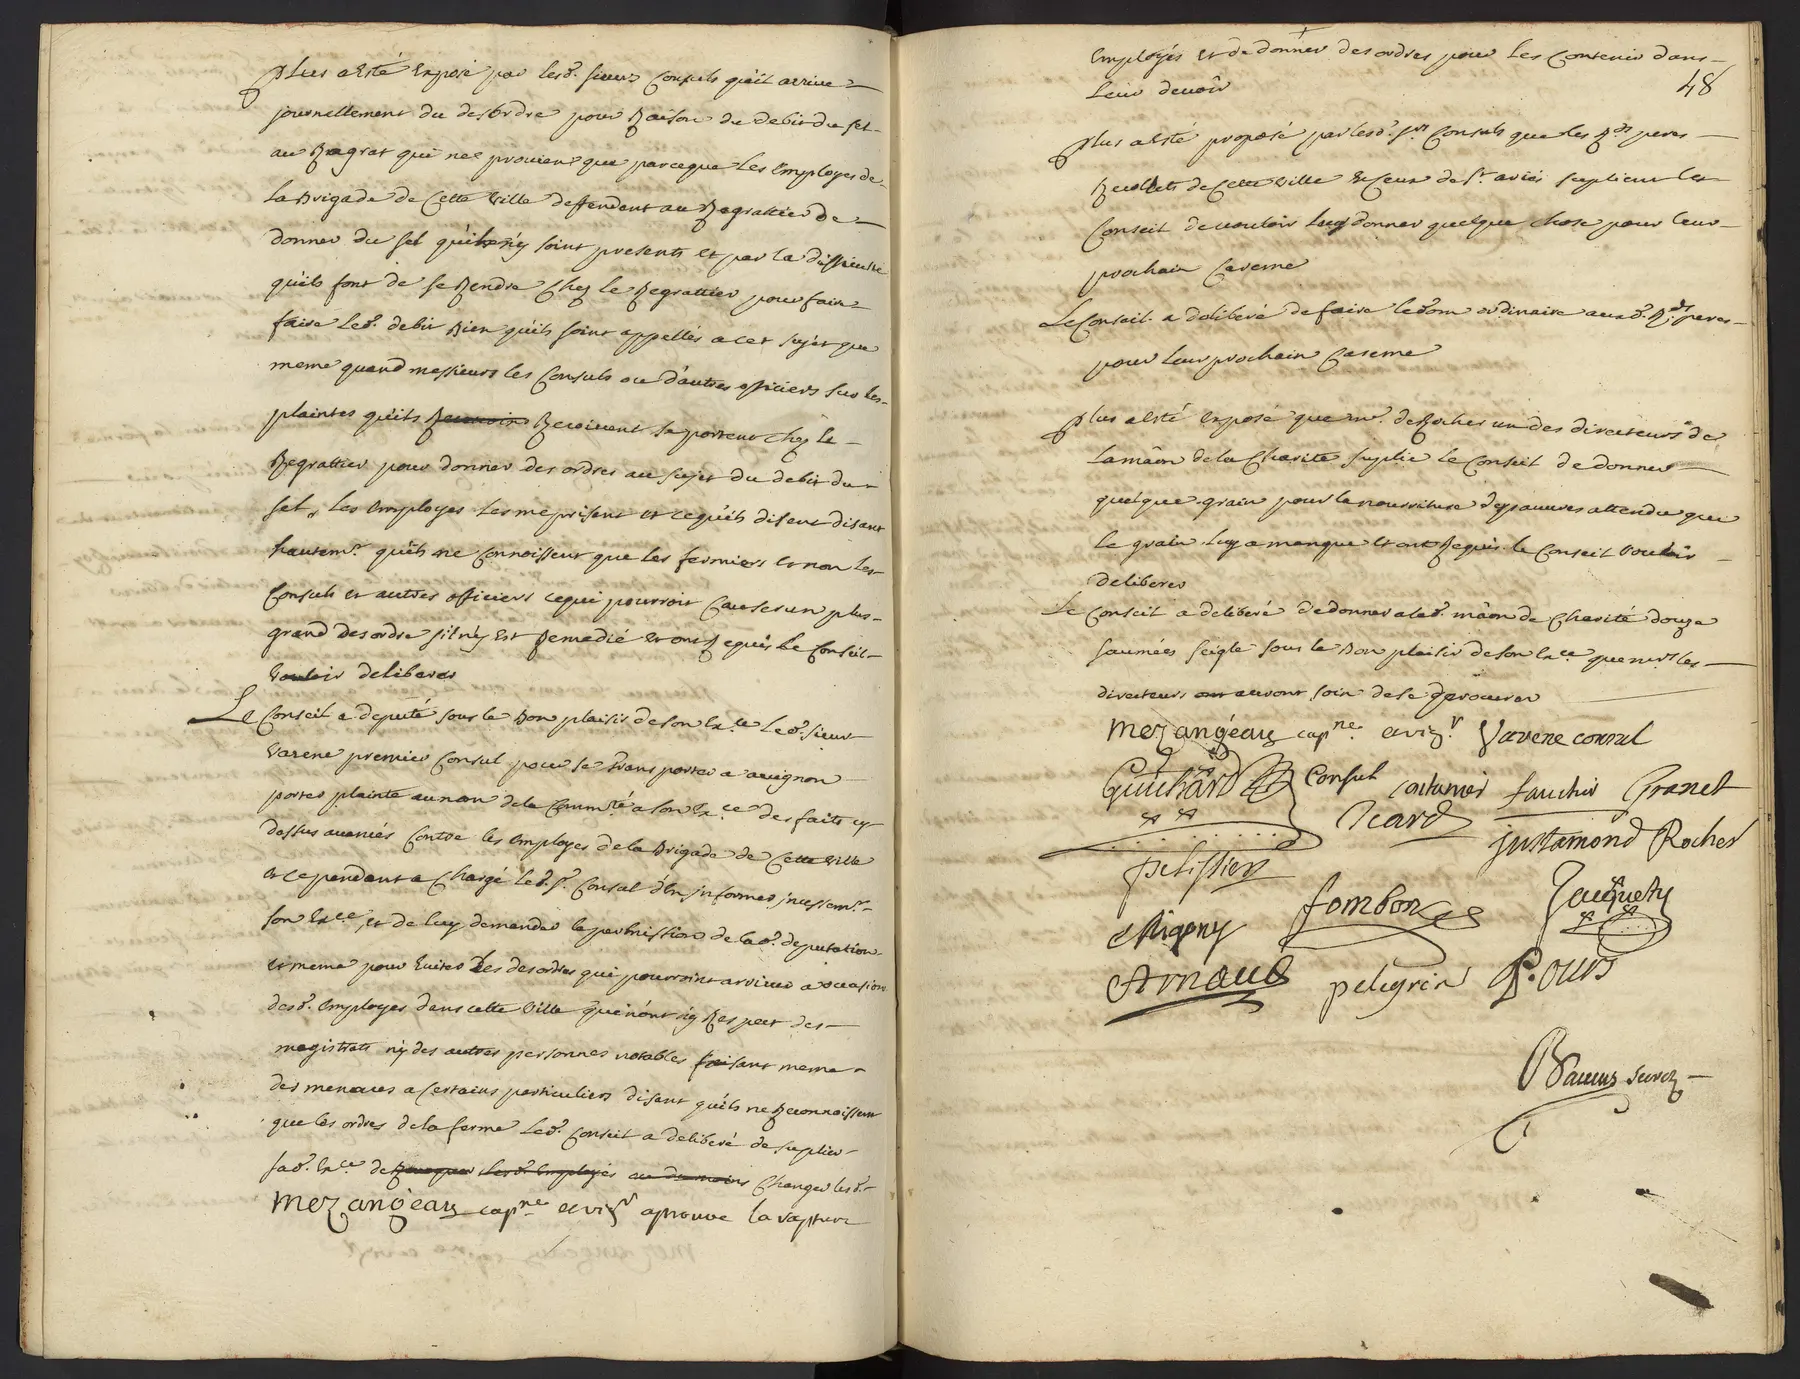 Plus a esté exposé par lesd. sieurs Consuls qu'il arrive
journellement du desordre pour Raison du debit du sel
au Regrat qui ne provient que parceque les Employes de
la Brigade de Cette Ville deffendent au Regrattier de
donner du sel qu'ils n'y soint presents et par la difficulté
qu'ils font de se Rendre Chez le Regrattier pour faire
faire led. debit Bien qu'ils soint appellés a cet sujet que
meme quand messieurs les Consuls ou d'autres officiers sur les
plaintes qu'ils Recoivent se portent chez le
Regrattier pour donner des ordres au sujet du debit du
sel, les employes les meprisent et ce qu'ils disent disant
hautemt. qu'ils ne Connoissent que les fermiers et non les
Consuls et autres officiers ce qui pourroit Causer un plus
grand desordre s'il n'y est Remedié et ont Requis le Conseil
Vouloir deliberer
Le Conseil a deputé sous le Bon plaisir de son Exce. led. sieur
Varene premier Consul pour se transporter a avignon
porter plainte au nom de la Commté. a son Exce. des faits cy
dessus avancés contre les employes de la Brigade de Cette Ville
et cependant a Chargé led. sr. Consul d'en informer incessemt.
son Exce. et de luy demander la permission de lad. deputation
et meme pour Eviter les desordres qui pourroint arriver a occasion
desd. Employes dans cette Ville que n'ont ny Respect des
magistrats ny des autres personnes notables faisant meme
des menaces a certains particuliers disant qu'ils ne Reconnoissent
que les ordres de la ferme led. Conseil a deliberé de suplier
sad. Exce. de Revoquer lesd. Employés au du moins Changer lesd.
Mezangeau capne. et vigr aprouve la rapture
Employés et de donner des ordres pour les Contenir dans
leur devoir
48
Plus a esté proposé par lesd. srs Consuls que les Rds peres
Recollets de Cette Ville et Ceux de st. suplient le
Conseil de vouloir luy donner quelque chose pour leur
prochain Careme
Le Conseil a deliberé de faire le don ordinaire auxd. Rds peres
pour leur prochain Careme
Plus a esté exposé que mr. de Rocher un des directeurs de
la maôn de la Charité suplie le Conseil de donner
quelque grain pour la nourriture des pauvres attendu que
le grain luy a manque et ont Requis le Conseil Vouloir
deliberer
Le Conseil a deliberé de donner a lad. maôn de Charité douze
saumées seigle sous le Bon plaisir de son Exce. que mrs les
directeurs ont auront soin de se procurer
Mezangeau capne. et vigr. Varene consul
Guichard Consul coutumier fauchier Granet
Icard justamond Rocher
pelissier
fombon Jacquety
Rigony
Arnaud pelegrin P. ours
secre.